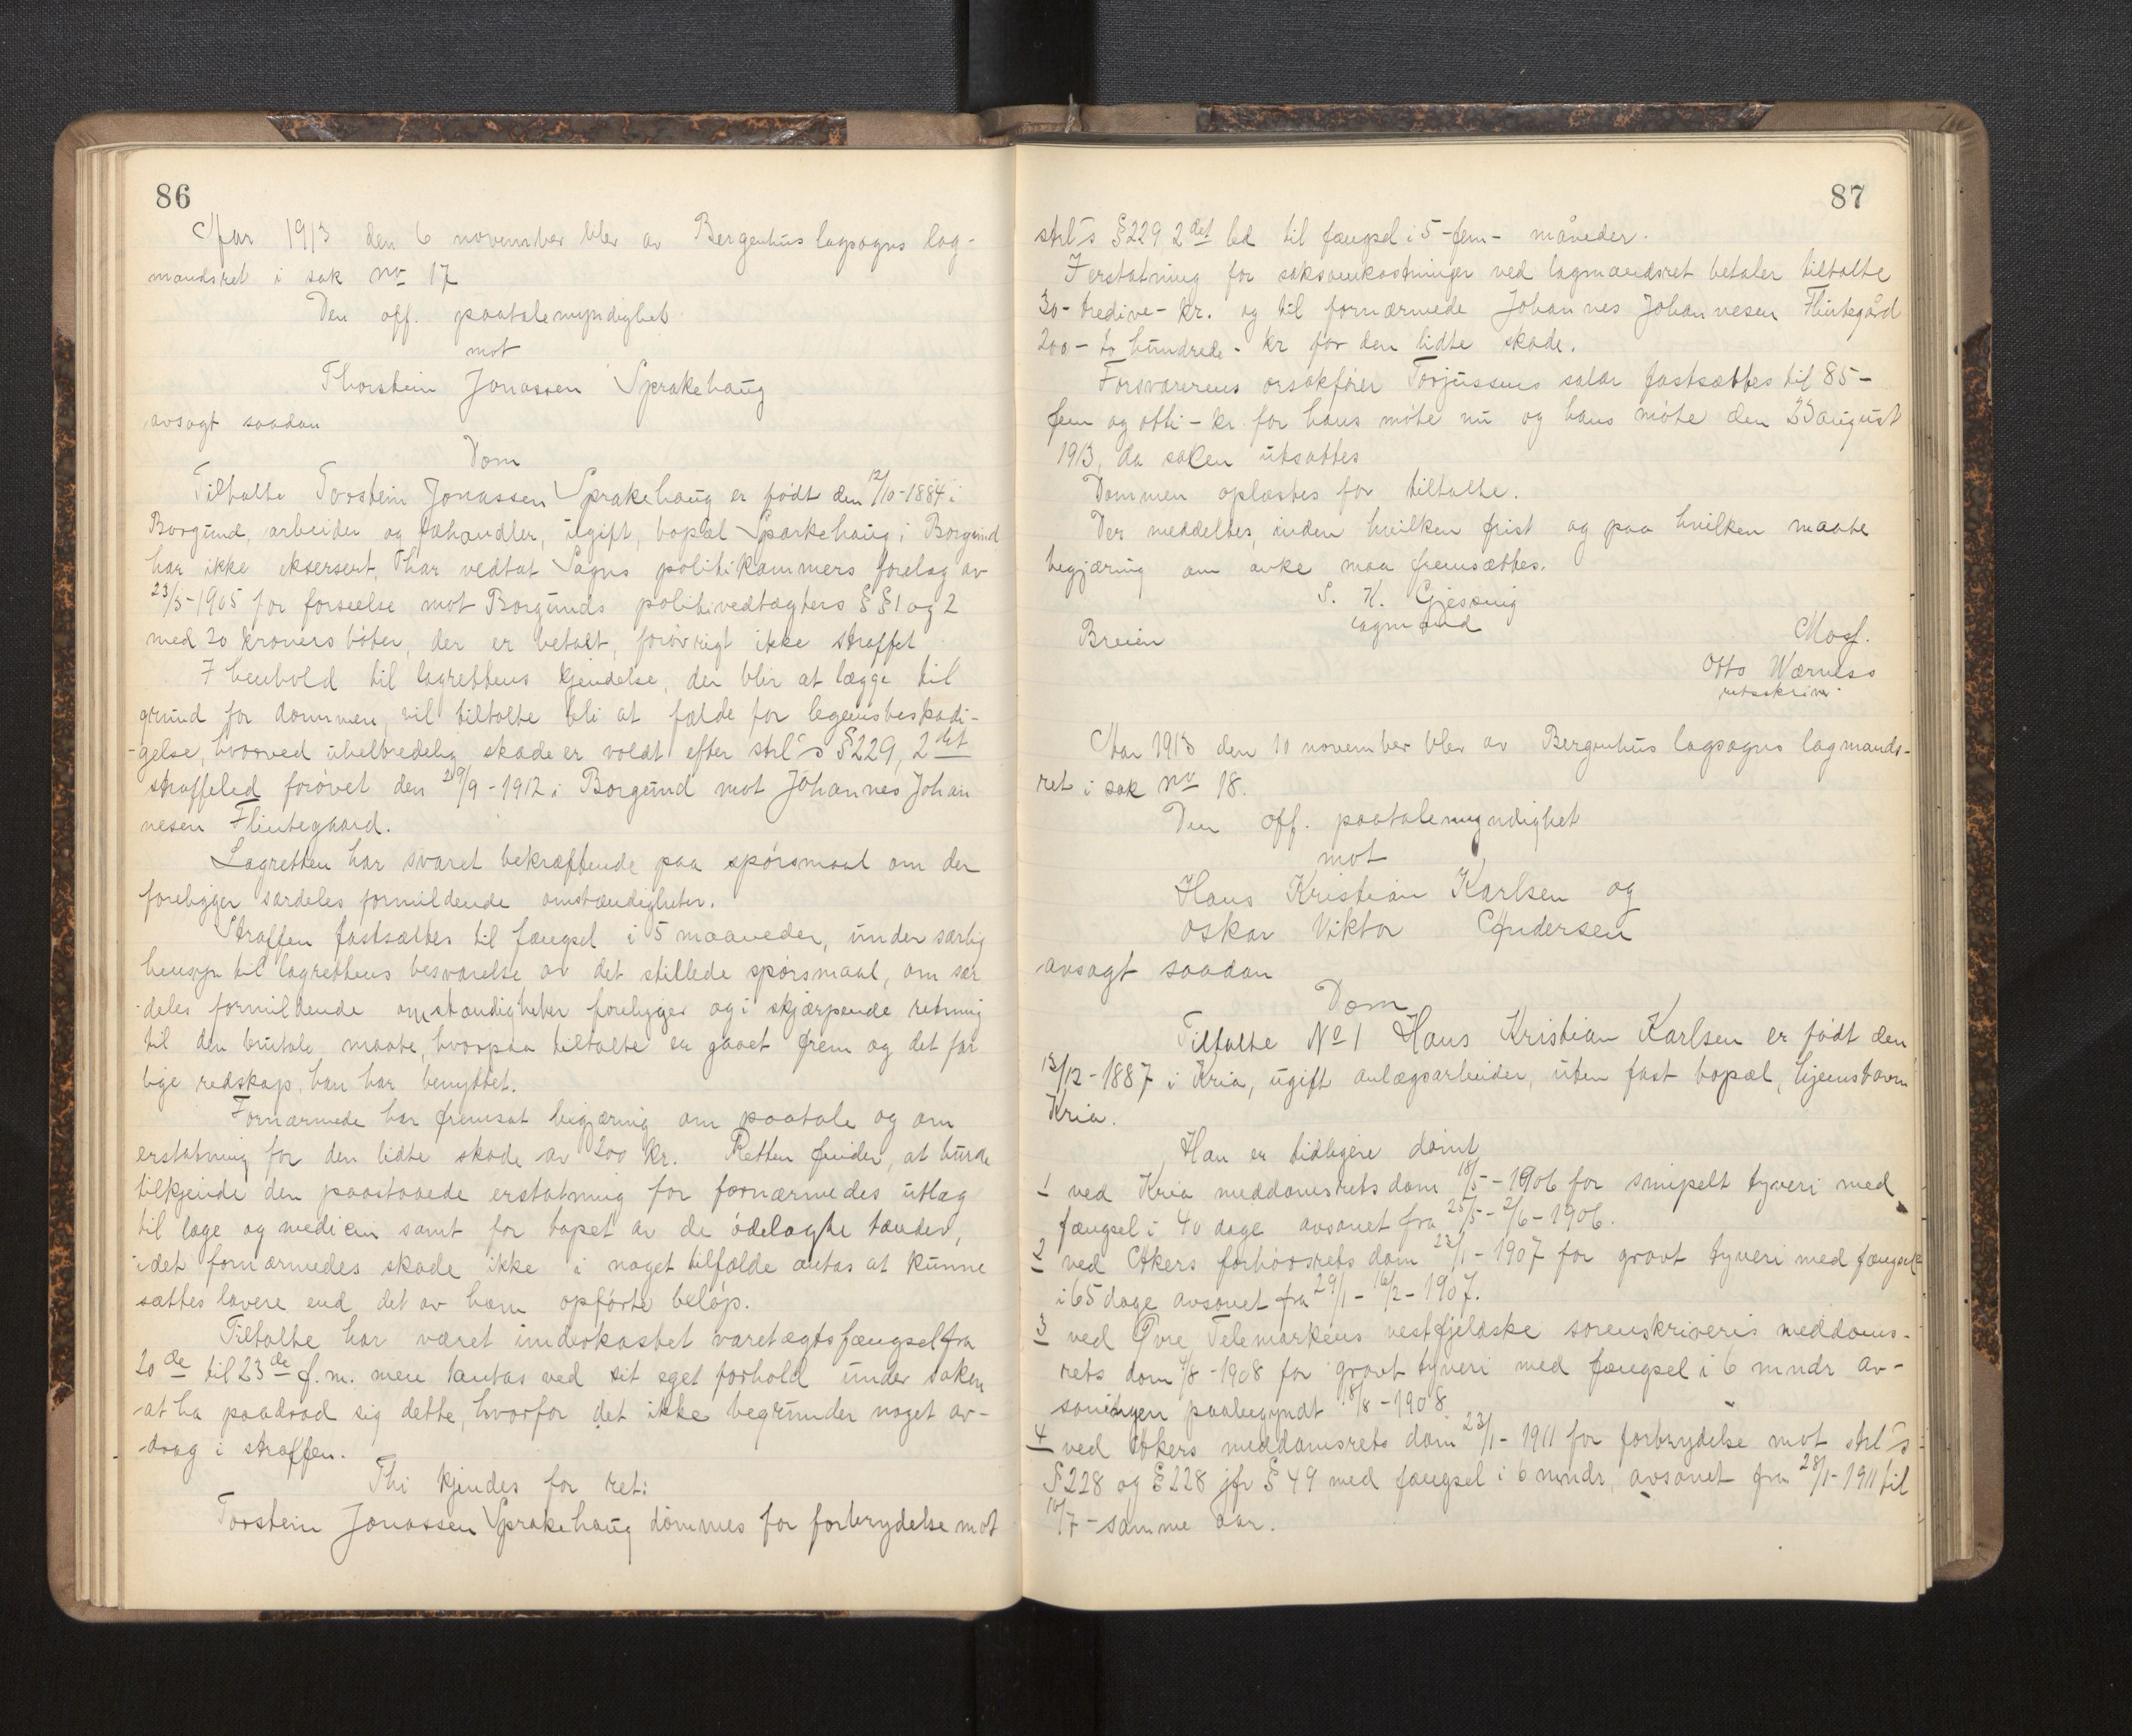 86
Aar 1913 den 6 november blev av Bergenhus lagsogns lag-
mandsret i sak No 17
Den off. paatalemyndighet
mot
Thorstein Jonassen Sprakehaug
avsagt saadan
Dom
Tiltalte Torstein Jonassen Sprakehaug er født den 12/10-1884 i
Borgund, arbeider og fæhandler, ugift, bopæl Sparkehaug i Borgund
har ikke eksersert, har vedtat Sogns politikammers forelag av
23/5-1905 for forseelse mot Borgunds politivedtægters §§1 og 2
med 20 kroners bøter, der er betalt, forøvrigt ikke straffet
I henhold til lagrettens kjendelse, der blir at lægge til
grund for dommen, vil tiltalte bli at fælde for legemsbeskadi-
-gelse, hvorved uhelbredelig skade er voldt efter strl's §229, 2det
straffeled forøvet den 29/9-1912 i Borgund mot Johannes Johan
nesen Flintegaard.
Lagretten har svaret bekræftende paa spørsmaal om der
foreligger særdeles formildende omstændigheter.
Straffen fastsættes til fængsel i 5 maaneder, under særlig
hensyn til lagrettens besvarelse av det stillede spørsmaal, om sær
-deles formildende omstændigheter foreligger og i skjærpende retning
til den brutale maate, hvorpaa tiltalte er gaaet frem og det far
lige redskap, han har benyttet.
Fornærmede har fremsat begjæring om paatale og om
erstatning for den lidte skade av 200 kr. Retten finder, at burde
tilkjende den paastaaede erstatning for fornærmedes utlæg
til læge og medicin samt for tapet av de ødelagte tænder,
idet fornærmedes skade ikke i noget tilfælde antas at kunne
sættes lavere end det av ham opførte beløp.
Tiltalte har været underkastet varetægtsfængsel fra
20de til 23de f.m. men antas ved sit eget forhold under saken
at ha paadrad sig dette, hvorfor det ikke begrunder noget av-
drag i straffen.
Thi kjendes for ret:
Torstein Jonassen Sprakehaug dømmes for forbrydelse mot
87
strl's §229 2det led til fængsel i 5-fem- måneder.
I erstatning for saksomkostninger ved lagmandsret betaler tiltalte
30-tredive-kr. og til fornærmede Johannes Johannesen Flintegård
200- to hundrede- kr for den lidte skade.
Forsvarerens orsakfører Torjussens salær fastsættes til 85-
fem og otti-kr. for hans møte nu og hans møte den 23 august
1913, da saken utsattes
Dommen oplæstes for tiltalte.
Der meddeltes, inden hvilken frist og paa hvilken maate
begjæring om anke maa fremsættes.
S. H. Gjessing
lagmand
Breien
Mosf.
Otto Wærness
retsskriver.
Aar 1913 den 10 november blev av Bergenhus lagsogns lagmands-
ret i sak No 18.
Den off. paatalemyndighet
mot
Hans Kristian Karlsen og
Oskar Viktor Andersen
avsagt saadan
Dom
Tiltalte No 1 Hans Kristian Karlsen er født den
13/12-1887 i Kria, ugift anlægsarbeider, uten fast bopæl, hjemstavn
Kria.
Han er tidligere dømt
1 ved Kria meddomsrets dom 18/5-1906 for simpelt tyveri med
fængsel i 40 dage avsonet fra 25/5-2/6-1906.
2 ved Akers forhørsrets dom 23/1-1907 for grovt tyveri med fængsel
i 65 dage avsonet fra 29/1-16/2-1907.
3 ved Øvre Telemarkens vestfjeldske sorenskriveris meddoms-
rets dom 4/8-1908 for grovt tyveri med fængsel i 6 mndr av-
soningen paabegyndt 18/8-1908.
4 ved Akers meddomsrets dom 23/1-1911 for forbrydelse mot strl's
§228 og §228 jfr §49 med fængsel i 6 mndr, avsonet fra 28/1-1911 til
10/7-samme aar.